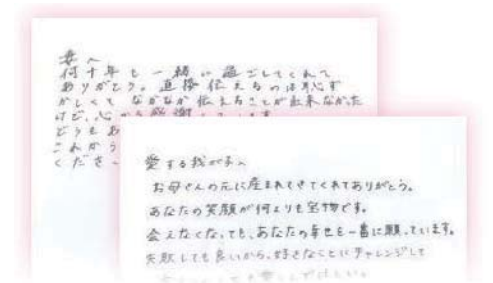 妻へ
何十年も一緒に過ごしてくれて
ありがとう。直接伝えるのは恥ず
かしくて なかなか伝えることが出来なかった
けど、心から感謝しています。
どうもあ
これから
くださ
愛する我が子へ
お母さんの元に産まれてきてくれてありがとう。
あなたの笑顔が何よりも宝物です。
会えなくなっても、あなたの幸せを一番に願っています。
失敗しても良いから、好きなことにチャレンジして